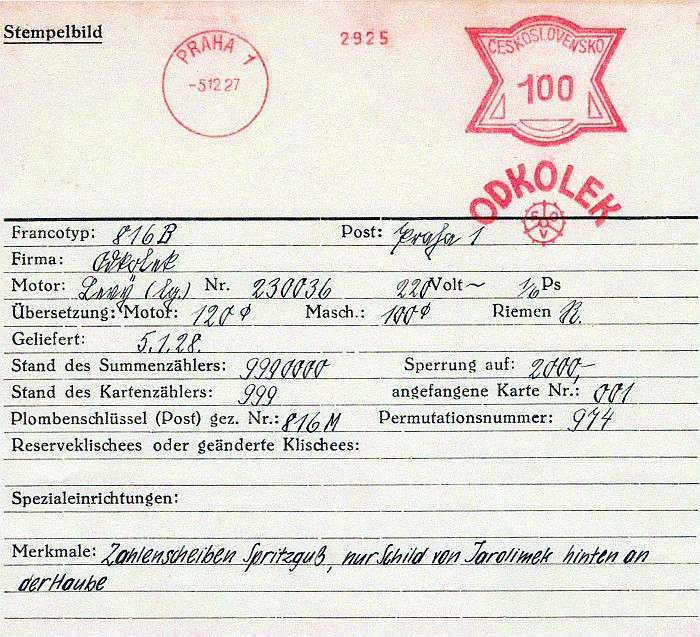 Stempelbild
PRAHA 1
-5 12 27
2925
ČESKOSLOVENSKO
100
ODKOLEK
F O V
Francotyp: 816 B Post: Praha 1
Firma: Odkolek
Motor: Levÿ (Eg.) Nr. 230036 220 Volt~ 1/6 Ps
Übersetzung: Motor: 120 ¢ Masch.: 100 ¢ Riemen R.
Geliefert: 5.1.28.
Stand des Summenzählers: 9990000 Sperrung auf: 2000,-
Stand des Kartenzählers: 999 angefangene Karte Nr.: 001
Plombenschlüssel (Post) gez. Nr.: 816 M Permutationsnummer: 974
Reserveklischees oder geänderte Klischees:
Spezialeinrichtungen:
Merkmale: Zahlenscheiben Spritzguß, nur Schild von Jarolimek hinten an
der Haube